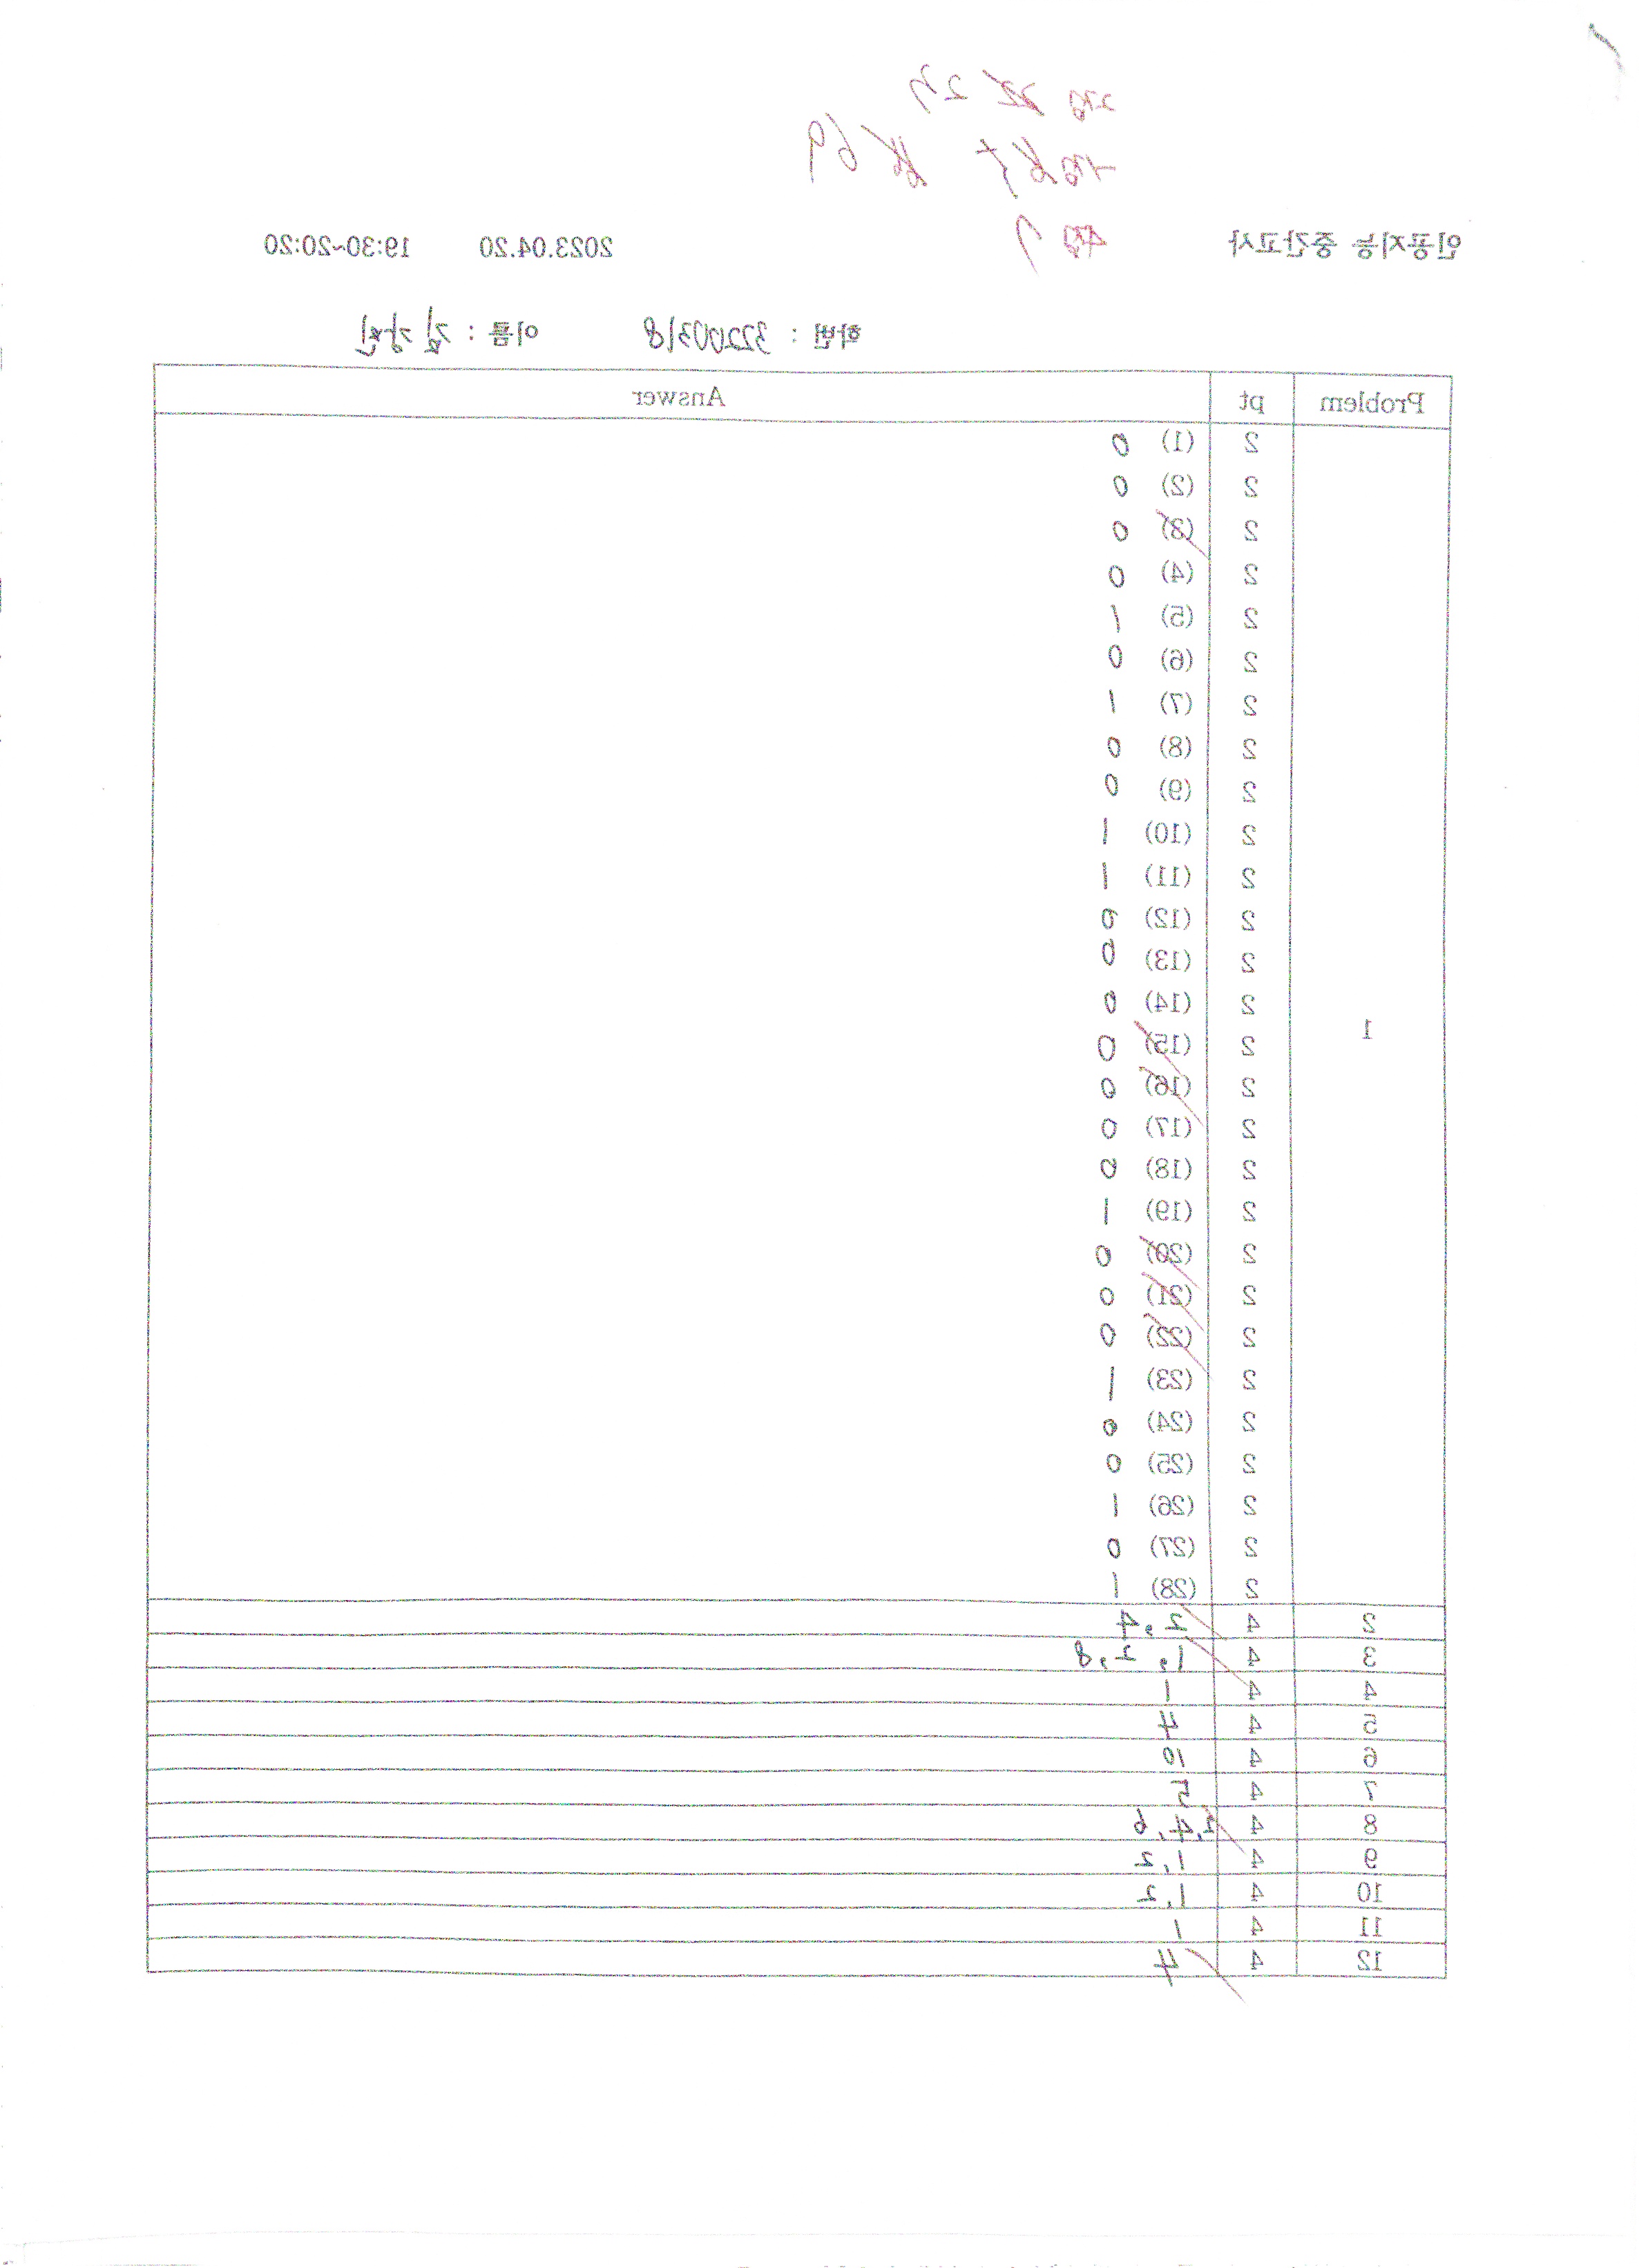 2점 22 23
-1점 1
66 69
4점 7
인공지능 중간고사 2023.04.20 19:30~20:20
학번 : 32200318 이름 : 김강민
Problem pt Answer
1
2 (1) 0
2 (2) 0
2 (3) 0
2 (4) 0
2 (5) 1
2 (6) 0
2 (7) 1
2 (8) 0
2 (9) 0
2 (10) 1
2 (11) 1
2 (12) 0
2 (13) 0
2 (14) 0
2 (15) 0
2 (16) 0
2 (17) 0
2 (18) 0
2 (19) 1
2 (20) 0
2 (21) 0
2 (22) 0
2 (23) 1
2 (24) 0
2 (25) 0
2 (26) 1
2 (27) 0
2 (28) 1
2 4 2,4
3 4 1,2,8
4 4 1
5 4 4
6 4 10
7 4 5
8 4 1,4,6
9 4 1,2
10 4 1,2
11 4 1
12 4 4